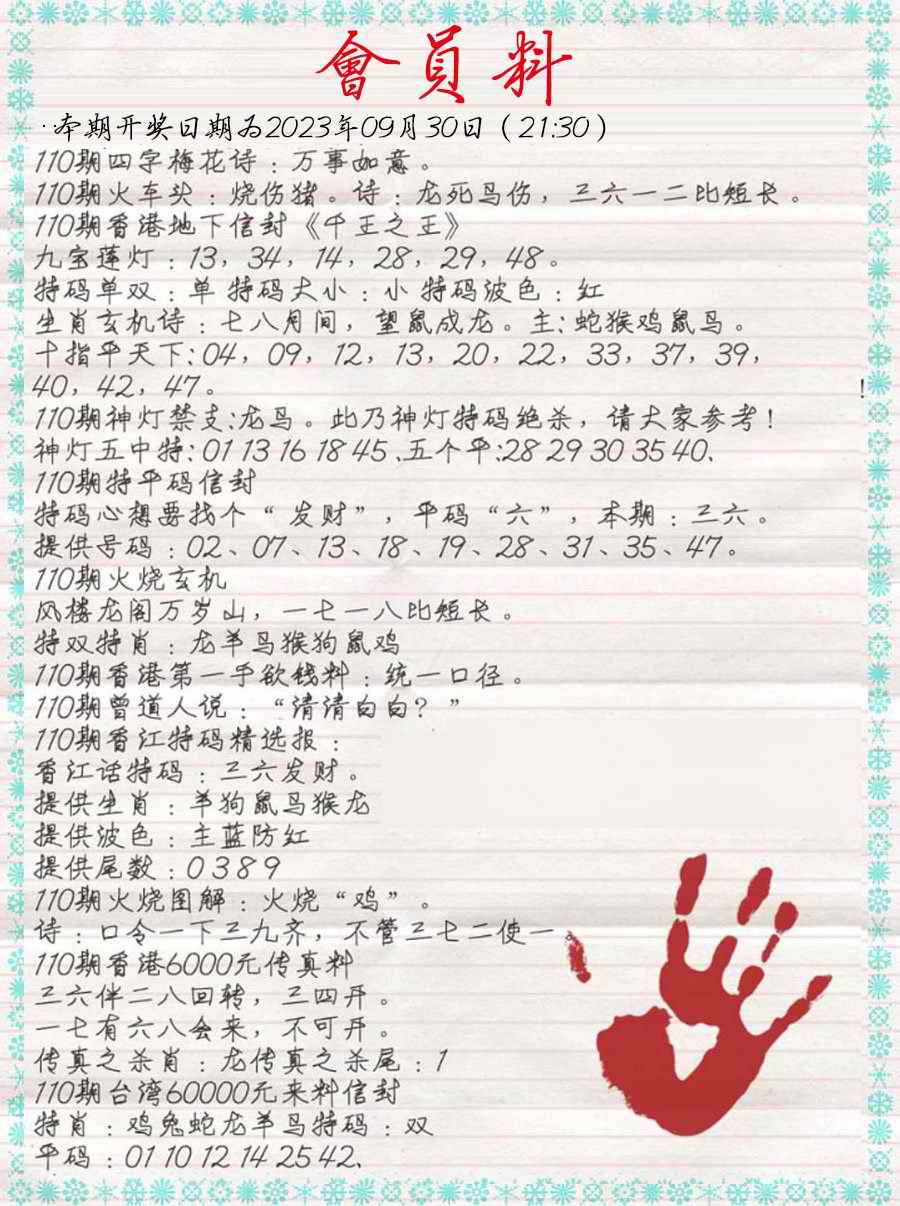 會員料
·本期开奖日期为2023年09月30日（21:30）
110期四字梅花诗：万事如意。
110期火车头：烧伤猪。诗：龙死鸟伤，三六一二比短长。
110期香港地下信封《千王之王》
九宝莲灯：13，34，14，28，29，48。
特码单双：单 特码大小：小 特码波色：红
生肖玄机诗：七八月间，望鼠成龙。主:蛇猴鸡鼠鸟。
十指平天下:04，09，12，13，20，22，33，37，39，
40，42，47。
！
110期神灯禁支:龙鸟。此乃神灯特码绝杀，请大家参考！
神灯五中特:01 13 16 18 45、五个平:28 29 30 35 40、
110期特平码信封
特码心想要找个“发财”，平码“六”，本期：三六。
提供号码：02、07、13、18、19、28、31、35、47。
110期火烧玄机
风楼龙阁万岁山，一七一八比短长。
特双特肖：龙羊马猴狗鼠鸡
110期香港第一手欲钱料：统一口径。
110期曾道人说：“请请白白？”
110期香江特码精选报：
香江话特码：三六发财。
提供生肖：羊狗鼠马猴龙
提供波色：主蓝防红
提供尾数：0 3 8 9
110期火烧图解：火烧“鸡”。
诗：口令一下三九齐，不管三七二使一。
110期香港6000元传真料
三六伴二八回转，三四开。
一七有六八会来，不可开。
传真之杀肖：龙传真之杀尾：1
110期台湾60000元来料信封
特肖：鸡兔蛇龙羊马特码：双
平码：01 10 12 14 25 42、